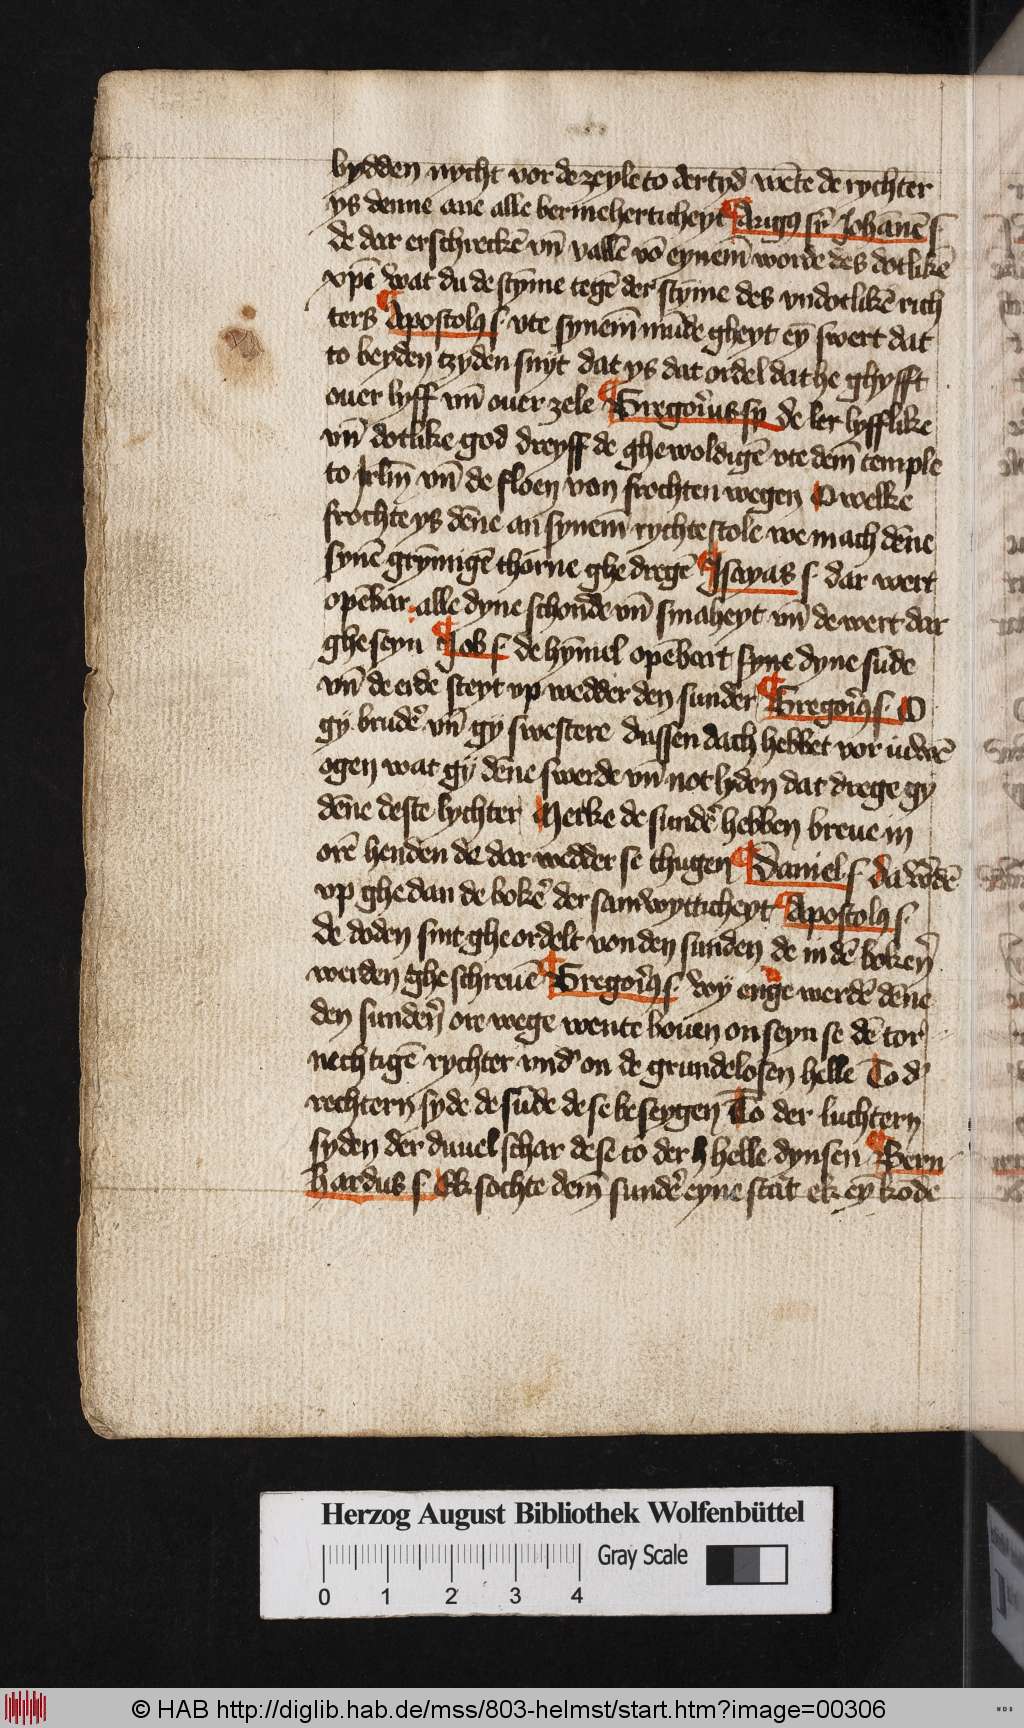 bydden nycht vor de zeyle to der tyd wēte de rychter
ys denne ane alle bermeherticheyt Augꝰ sr̄ Johānē s·
de dar erschreckē vn̄ vallē vō eynem̄ worde des dotlikē
vpē wat du de stȳme tegē der stȳme des vndotlikē rich
ters Apostolꝰ s· vte synem̄ mūde gheyt eȳ swert dat
to beyden tzyden snyt dat ys dat ordel dat he ghyfft
ouer lyff vn̄ ouer zele Gregorius sp de ler lyfflike
vn̄ dotlike god dreyff de ghewoldigē vte dem̄ temple
to Jrlm̄ vn̄ de floen von frochten wegen O welke
frochte ys dēne an synem̄ rychtestole we mach dēne
synē grȳnigē thorne ghedregē Jsayas s· dar wert
opēbar alle dyne schonde vn̄ smaheyt vn̄ de wert dar
gheseyn Job s· de hȳmel opēbart syne dyne sūde
vn̄ de erde steyt vp wedder den sunder Gregoriꝰ s· O
gy brudẽ vn̄ gy swestere dussen dach hebbet vor iuwē
ogen wat gy dēne swerde vn̄ not lyden dat drege gy
dēne deste lychter Merke de sundẽ hebben breue in
orē henden de dar wedder se thugen Daniel s· da wdē
vp ghedan de bokẽ der samwytticheyt Apostolꝰ s·
de doden sint gheordelt von den sunden de in dē boken̄
werden gheschreuē Gregoriꝰ s· wy enge werdē dēne
den sundern̄ ore wege wente bouen on seyn se dē tor
nechtigē rychter vnd on de grundelosen helle To d
rechtern syde de sūde de se beseygen To der luchtern
syden der duuel schar de se to der h helle dynsen Bern
hardus s· Ek sochte dem̄ sundẽ eyne stat ek eȳ kōde
Herzog August Bibliothek Wolfenbüttel
Gray Scale
0 1 2 3 4
© HAB http://diglib.hab.de/mss/803-helmst/start.htm?image=00306